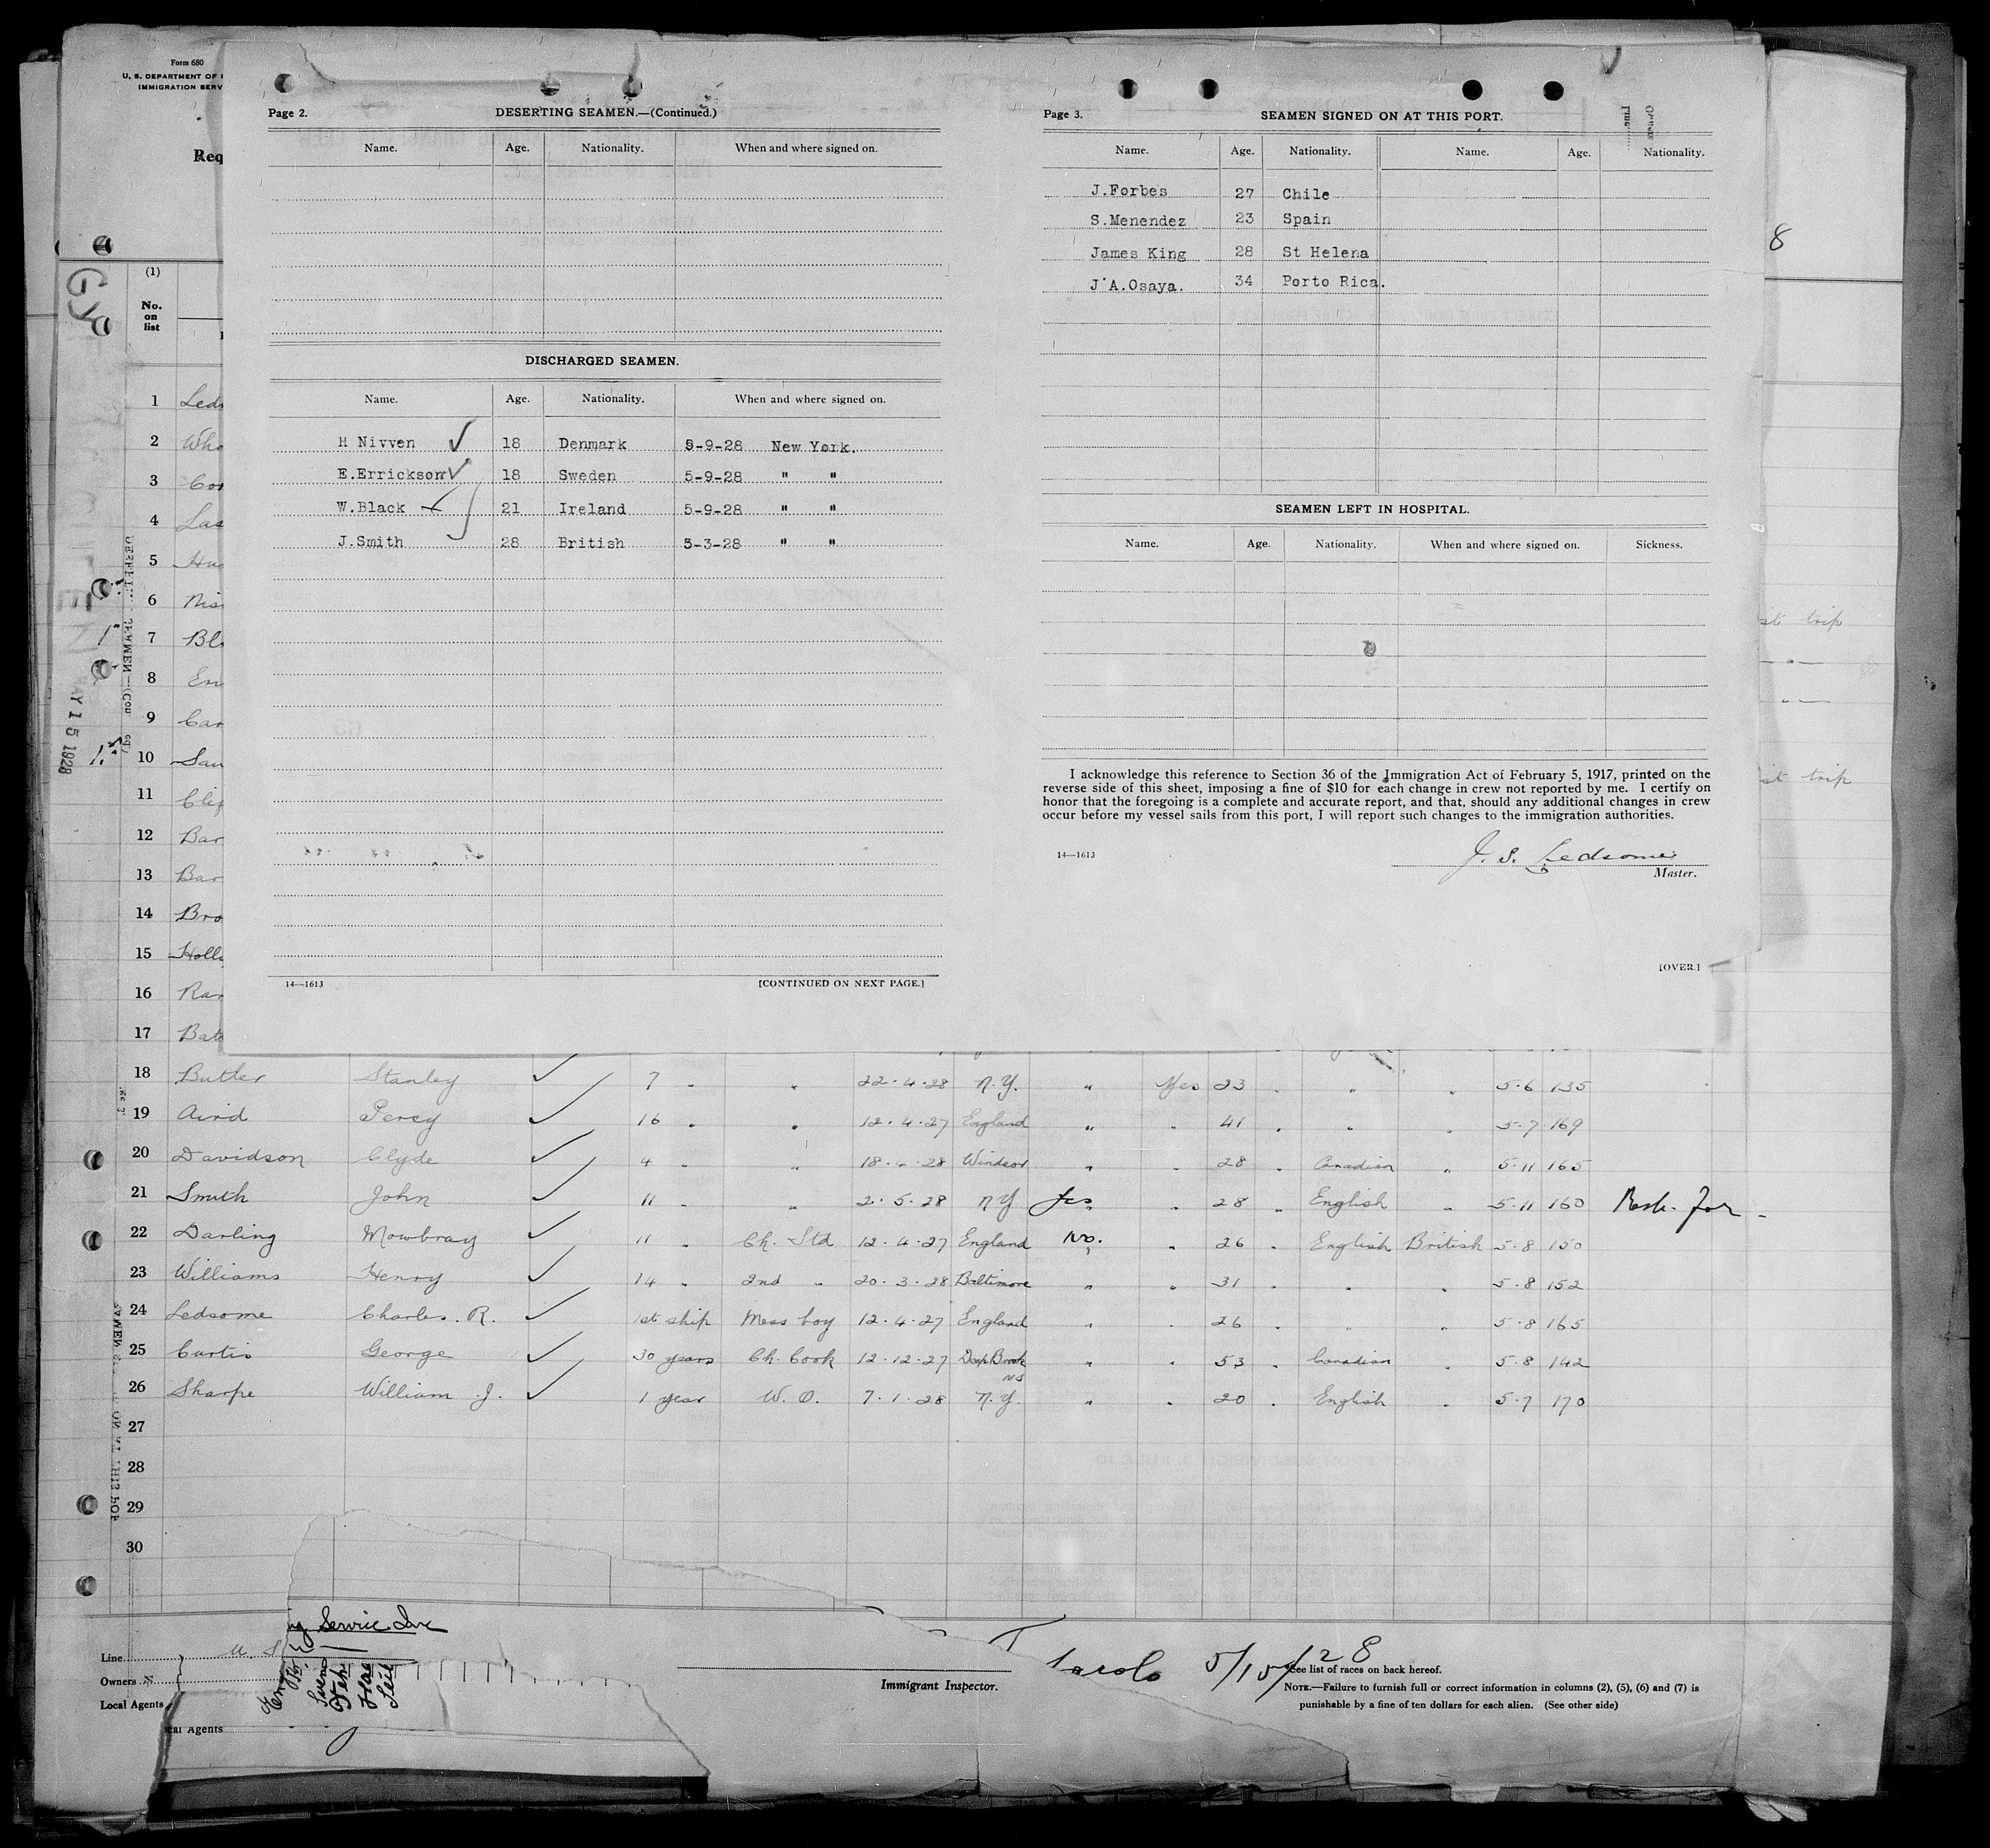 Form 680
U. S. DEPARTMENT OF
IMMIGRATION SERV
Req
Page 2. DESERTING SEAMEN.—(Continued.)
Name. Age. Nationality. When and where signed on.
DISCHARGED SEAMEN.
Name. Age. Nationality. When and where signed on.
H Nivven 18 Denmark 5-9-28 New York.
E.Errickson 18 Sweden 5-9-28 " "
W.Black 21 Ireland 5-9-28 " "
J.Smith 28 British 5-3-28 " "
14—1613 [CONTINUED ON NEXT PAGE.]
Page 3. SEAMEN SIGNED ON AT THIS PORT.
Name. Age. Nationality. Name. Age. Nationality.
J.Forbes 27 Chile
S.Menendez 23 Spain
James King 28 St Helena
J'A.Osaya. 34 Porto Rica.
SEAMEN LEFT IN HOSPITAL.
Name. Age. Nationality. When and where signed on. Sickness.
I acknowledge this reference to Section 36 of the Immigration Act of February 5, 1917, printed on the
reverse side of this sheet, imposing a fine of $10 for each change in crew not reported by me. I certify on
honor that the foregoing is a complete and accurate report, and that, should any additional changes in crew
occur before my vessel sails from this port, I will report such changes to the immigration authorities.
J. S. Ledsome
14—1613 Master.
[OVER.]
8
st trip
st trip
(1)
No.
on
list
1 Leds
2 Who
3 Cor
4 Las
5 Hu
6 Nis
7 Bl
8 En
9 Car
10 San
11 Clif
12 Bar
13 Bar
14 Bro
15 Holl
16 Ran
17 Bat
AY 15 1928
18 Butler Stanley 7 " " 22.4.28 N.Y. " Yes 23 " " " 5.6 135
19 Aird Percy 16 " " 12.4.27 England " " 41 " " " 5.7 169
20 Davidson Clyde 4 " " 18.4.28 Windsor " " 28 " Canadian " 5.11 165
21 Smith John 11 " " 2.5.28 NY Yes " 28 " English " 5.11 160
22 Darling Mowbray 11 " Ch. Std 12.4.27 England No. " 26 " English British 5.8 150
23 Williams Henry 14 " 2nd " 20.3.28 Baltimore " " 31 " " " 5.8 152
24 Ledsome Charles. R. 1st ship Mess boy 12.4.27 England " " 26 " " " 5.8 165
25 Curtis George 30 years Ch. Cook 12.12.27 Deep Brook NS " " 53 " Canadian " 5.8 142
26 Sharpe William J. 1 year W. O. 7.1.28 N.Y. " " 20 " English " 5.7 170
27
28
29
30
Service Inc
Line
Owners
Local Agents
al Agents
Immigrant Inspector.
5/15/28
See list of races on back hereof.
NOTE.—Failure to furnish full or correct information in columns (2), (5), (6) and (7) is
punishable by a fine of ten dollars for each alien. (See other side)